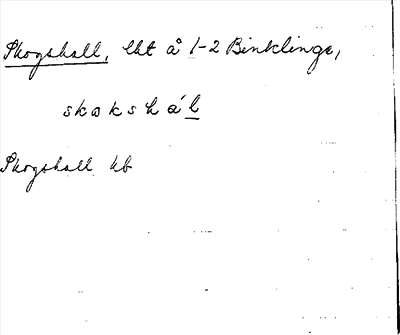 Skogshall, lht å 1-2 Binklinge,
skωkshál
Skogshall hb